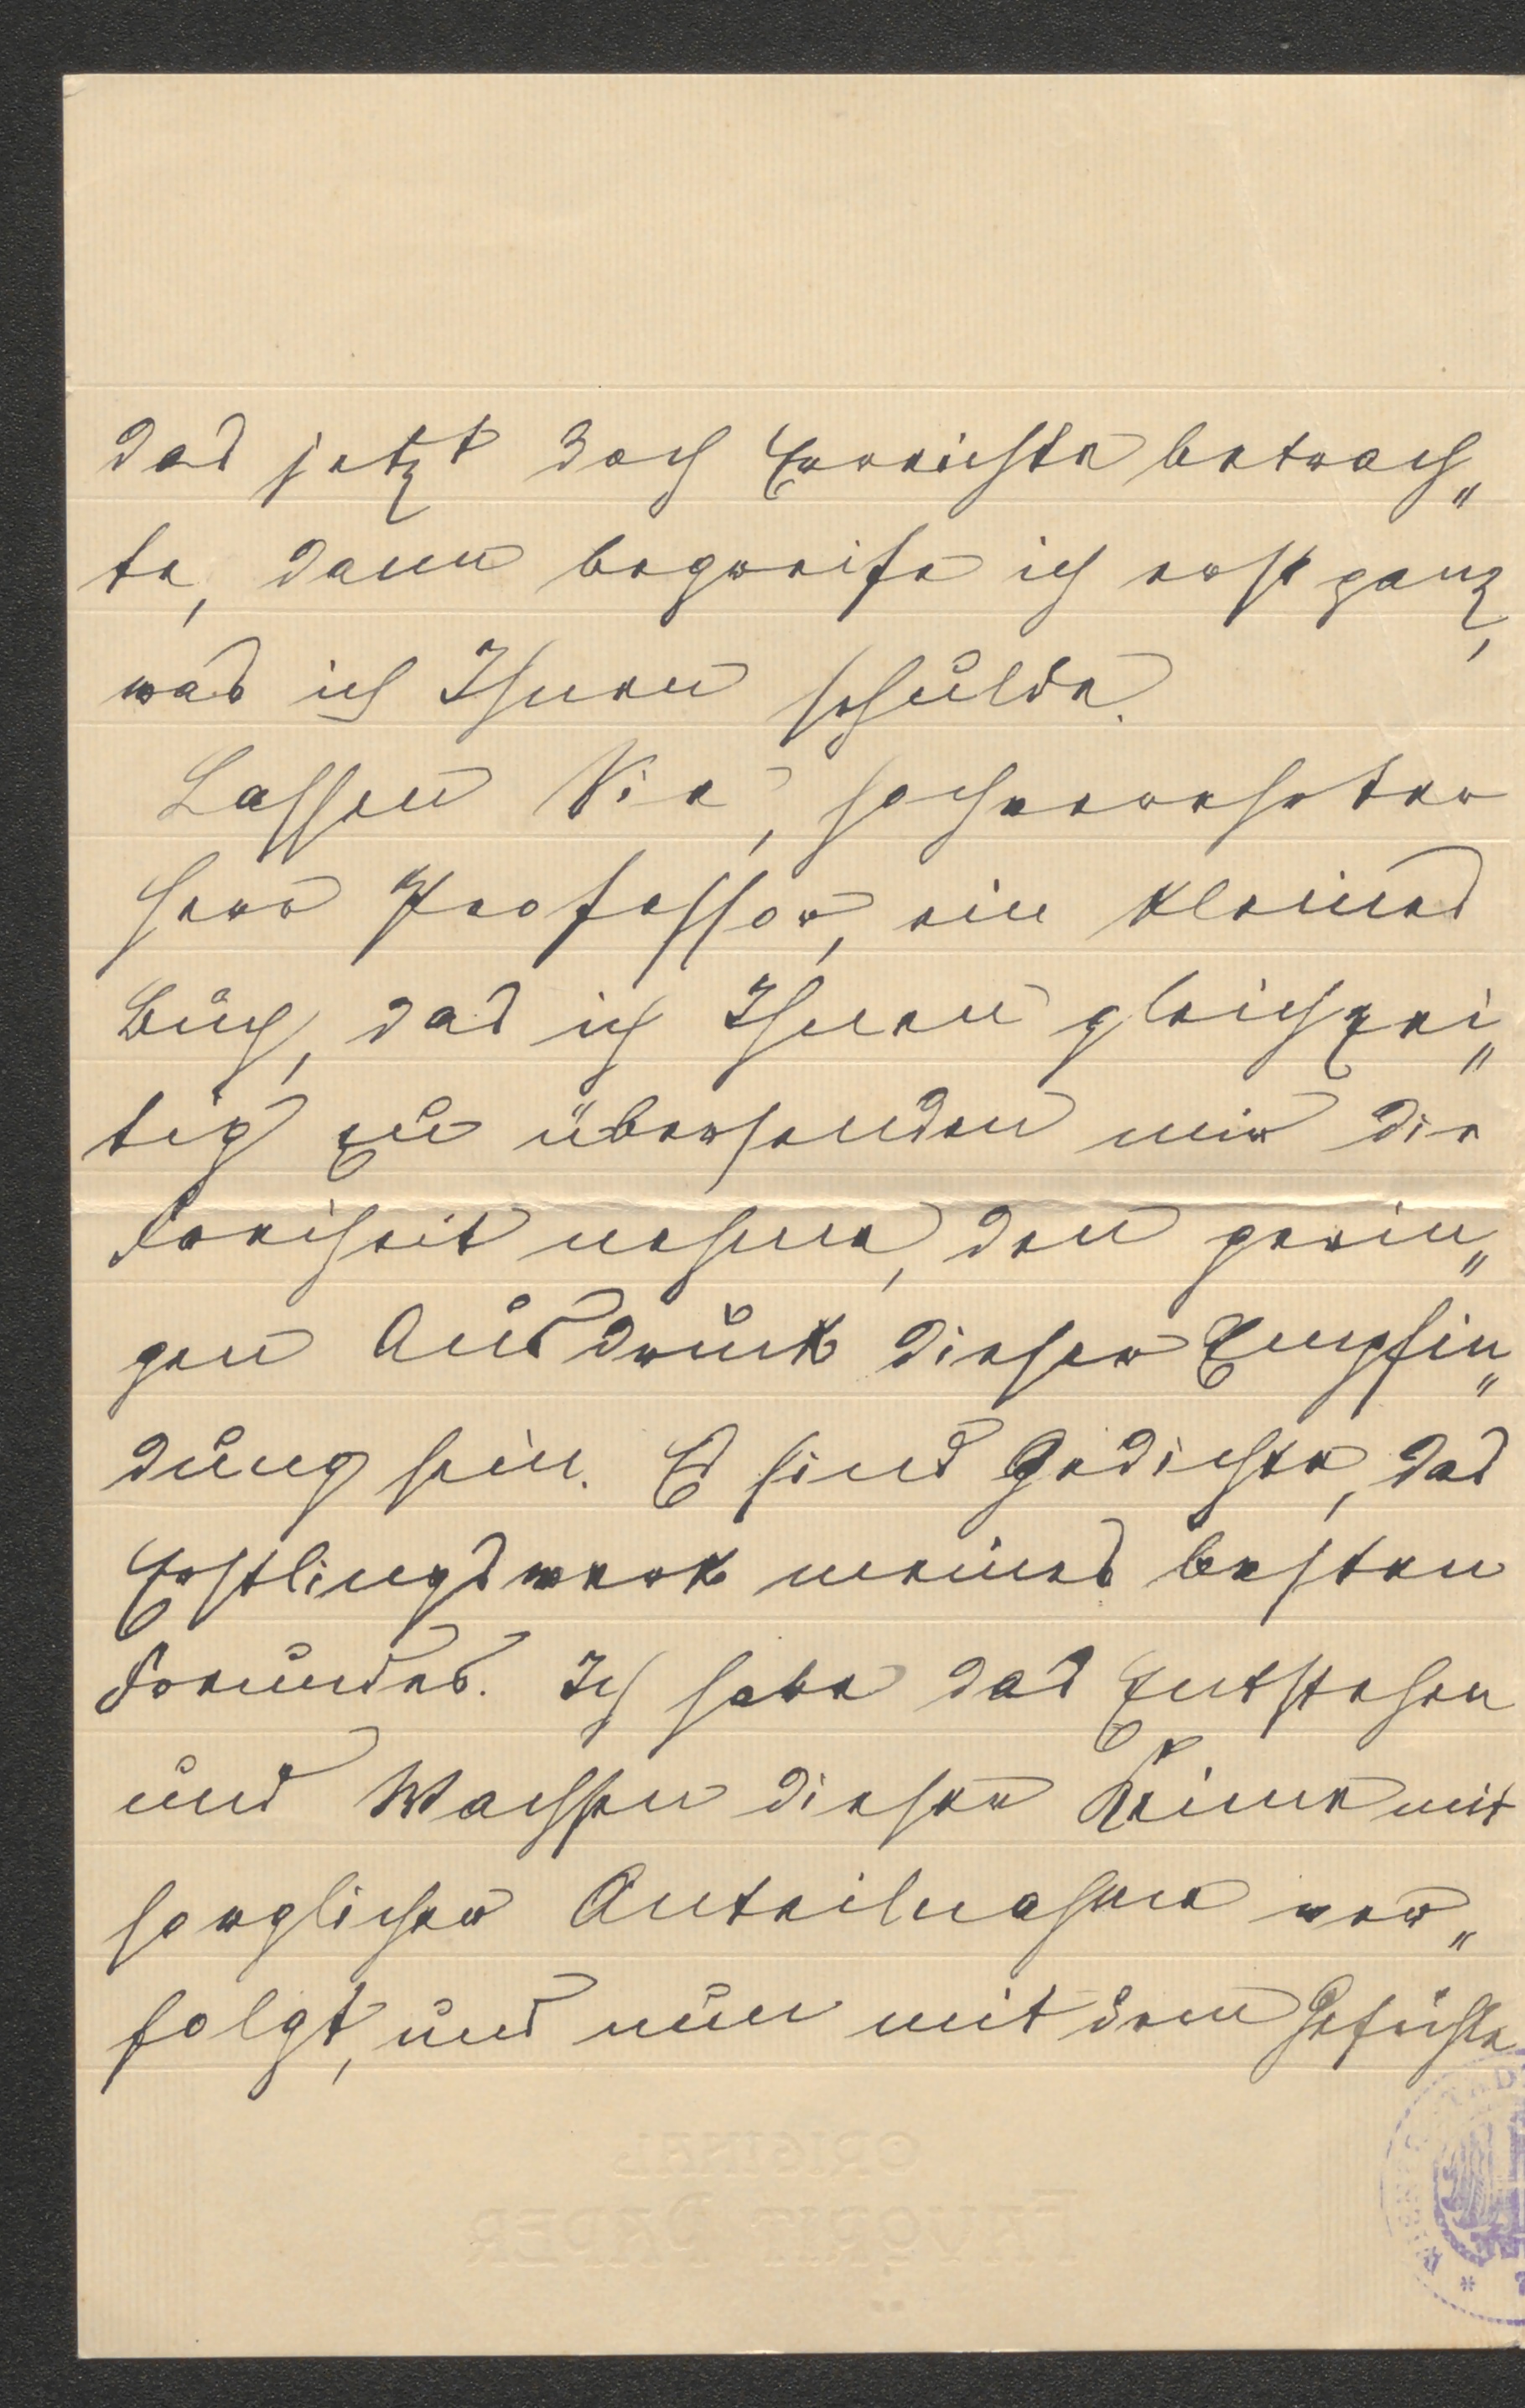 das jetzt doch Erreichte betrach„
te, dann begreife ich erst ganz,
was ich Ihnen schulde.
Lassen Sie, hochverehrter
Herr Professor, ein kleines
Buch, das ich Ihnen gleichzei„
tig zu übersenden mir die
Freiheit nehme, den gerin„
gen Ausdruck dieser Empfin„
dung sein. Es sind Gedichte, das
Erstlingswerk meines besten
Freundes. Ich habe das Entstehen
und Wachsen dieser Keime mit
sorglicher Anteilnahme ver„
folgt, und nun mit dem Gefühle
ORIGINAL
FAVOR PAPER